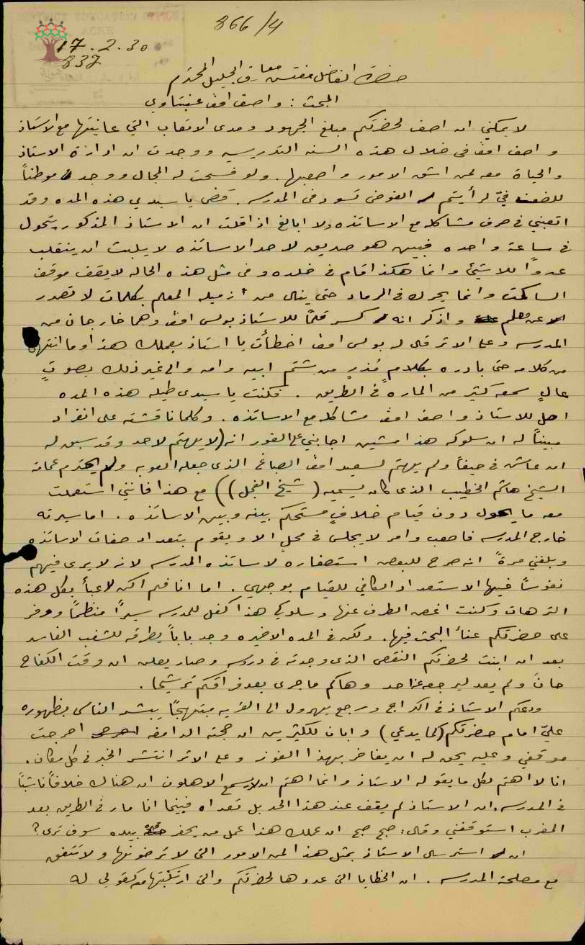 866/4
17.2.30
837
حضرة الفاضل مفتش معارف الجليل المحترم
المبحث : واصف افندي عنبتاوي
لا يمكني ان اصف لحضرتكم مبلغ الجهود ومدى الاتعاب التي عانيتها مع الاستاذ
واصف افندي في خلال هذه السنه التدريسيه ووجدت ان ادارة الاستاذ
والحياة معه لمن اشق الامور واصعبها . ولو فسحت له المجال ووجد موطناً
للضعف فيّ لرأيتم الفوضى تسود في المدرسه . قضى يا سيدي هذه المده وقد
اتعبني في صرف مشاكله مع الاساتذه ولا ابالغ اذا قلت ان الاستاذ المذكور يتحول
في ساعة واحده فبين هو صديق لاحد الاساتذه لا يلبث ان ينقلب
عدواً للا شيء وانما هكذا قام في خلده وفي مثل هذه الحاله لا يقف موقف
الساكت وانما يحرك في الرماد حتى ينال من زميله المعلم بكلمات لا تصدر
عن معلم واذكر انه كسر قلماً للاستاذ بولس افندي وهما خارجان من
المدرسه وعلى الاثر قال له بولس افندي اخطأت يا استاذ بعملك هذا وما انتهى
من كلامه حتى بادره بكلام قذر من شتم ابيه وامه والى غير ذلك بصوت
عالٍ سمعه كثير من المارة في الطريق . فكنت يا سيدي طيلة هذه المده
احل للاستاذ واصف افندي مشاكله مع الاساتذه . وكلما ناقشته على انفراد
مبيناً له ان سلوكه هذا مشين اجابني على الفور انه (لا يهتم لاحد وقد سبق له
ان عاش في حيفا ولم يهتم لسعيد افندي الصباغ الذي جعله العوبه ولم يحترم عمامة
الشيخ هاشم الخطيب الذي كان يسميه (شيخ الفجل)) مع هذا فانني استعملت
معه ما يحول دون قيام خلاف مستحكم بينه وبين الاساتذه . اما سيرته
خارج المدرسه فاصعب وامر لا يجلس في محل الا ويقوم بتعداد صفات الاساتذه
وبلغني مرةً انه صرح للبعض استصغاره لاساتذة المدرسه لانه لا يرى فيهم
نفوساً فيها الاستعداد الكافي للقيام بوجهي . اما انا فلم اكن لاعبأ بكل هذه
الترهات وكنت اغض الطرف عنها وسلوكي هذا كفل للمدرسه سيراً منتظماً ووفر
على حضرتكم عناء البحث فيها . ولكن في المده الاخيره وجد باباً يطرقه للشغب الفاسد
بعد ان ابنت لحضرتكم النقص الذي وجدته في درسه وصار يعلن ان وقت الكفاح
حان ولم يعد لي مرجع واحد وهاكم ما جرى بعد فراقكم ترشيحا .
ودعكم الاستاذ في الكراج ورجع يهرول الى القريه مبتهجاً يبشر الناس بظهوره
عليّ امام حضرتكم (كما يدعي) وابان للكثيرين ان حجته الدامغه احرجت
موقفي وعليه يحق له ان يفاخر بهذا الفوز وعلى الاثر انتشر الخبر في كل مكان .
انا لا اهتم لكل ما يقوله الاستاذ وانما اهتم ان لا يسمع الاهلون ان هناك خلافاً ناشباً
في المدرسه . ان الاستاذ لم يقف عند هذا الحد بل تعداه فبينما انا مار في الطريق بعد
المغرب استوقفني وقال : صح صح ان عملك هذا عمل من يحفر بيده سوف ترى ؟
ان استرسال الاستاذ بمثل هذا لمن الامور التي لا ترضونها ولا تتفق
مع مصلحة المدرسه . ان الخطايا التي عددها لحضرتكم والتي ارتكبتها كقولي له